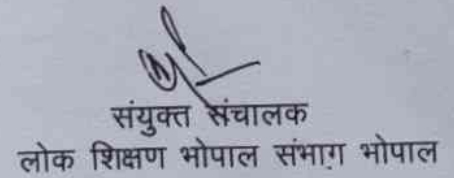 संयुक्त संचालक
लोक शिक्षण भोपाल संभाग भोपाल